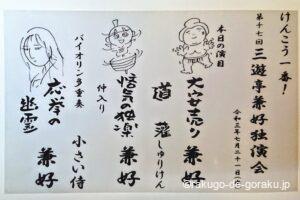 けんこう一番!
第十七回 三遊亭兼好独演会
令和三年七月二十一日(水)
本日の演目
大安売り 兼好
道灌 しゅりけん
悋気の独楽 兼好
仲入り
バイオリン多重奏 小さい侍
応挙の幽霊 兼好
©rakugo-de-goraku.jp